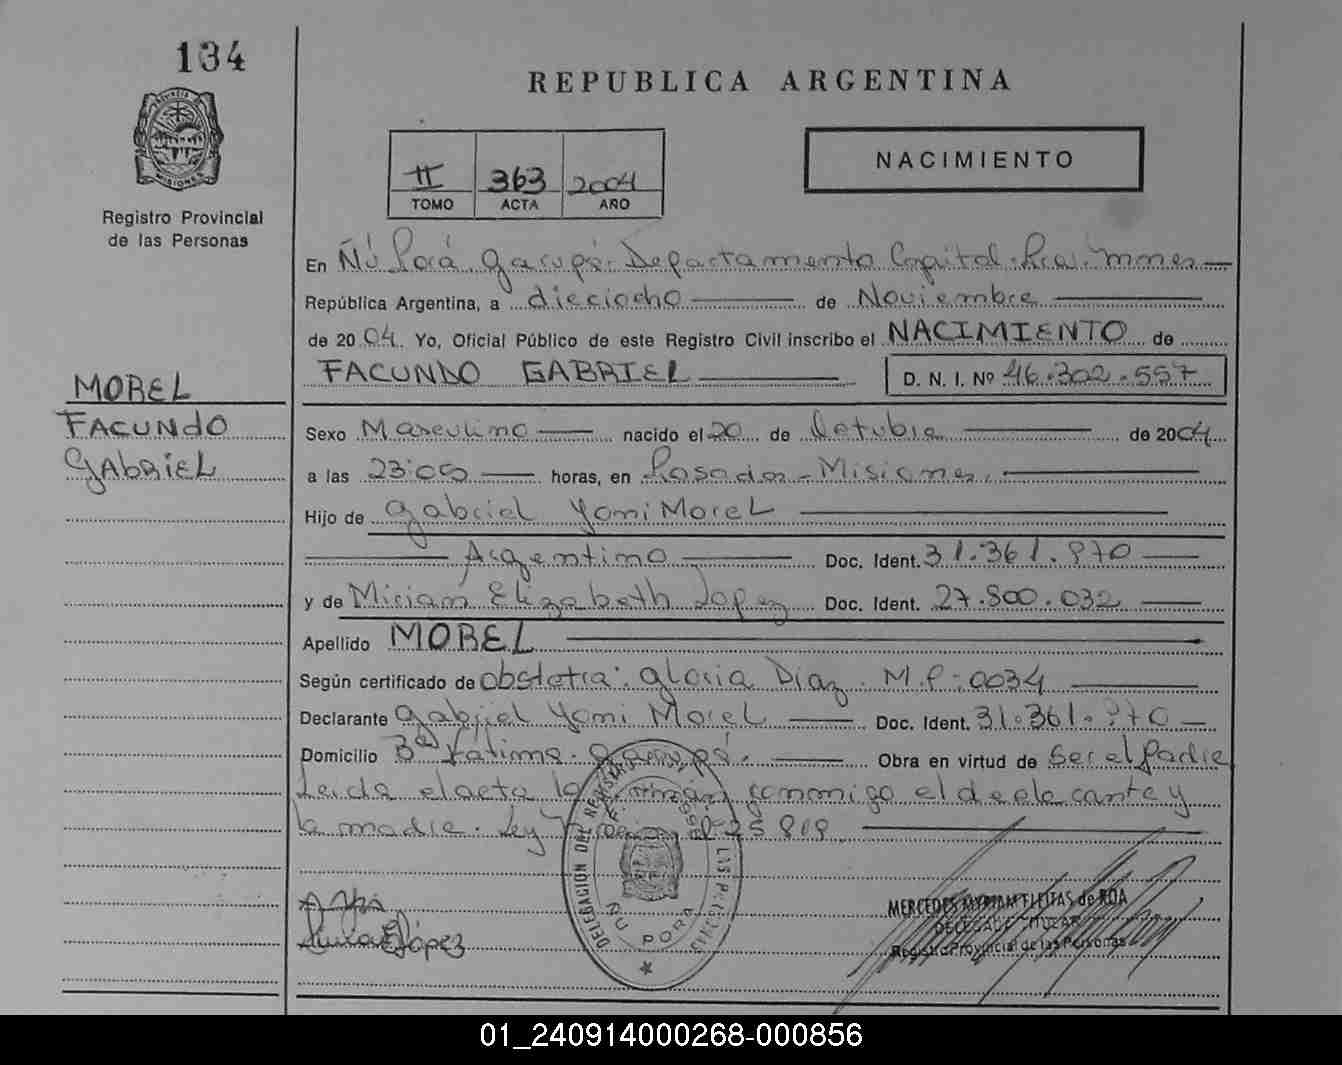 134
REPUBLICA ARGENTINA
PROVINCIA DE MISIONES
Registro Provincial
de las Personas
II 363 2004
TOMO ACTA AÑO
NACIMIENTO
En Ñú Porá. Garupá. Departamento Capital. Pcia. Mnes
República Argentina, a dieciocho de Noviembre
de 2004. Yo, Oficial Público de este Registro Civil inscribo el NACIMIENTO de
FACUNDO GABRIEL D. N. I. Nº 46.302.557
MOREL
FACUNDO
GABRIEL
Sexo Masculino nacido el 20 de Octubre de 2004
a las 23:00 horas, en Posadas - Misiones.
Hijo de Gabriel Yoni Morel
Argentino Doc. Ident. 31.361.970
y de Miriam Elizabeth Lopez Doc. Ident. 27.800.032
Apellido MOREL
Según certificado de obstetra: Gloria Diaz. M.P: 0034
Declarante Gabriel Yoni Morel Doc. Ident. 31.361.970
Domicilio Bº Fátima. Garupá. Obra en virtud de Ser el Padre
Leida el acta la firman conmigo el declarante y
la madre. Ley 25.819
DELEGACION DEL REGISTRO DE LAS PERSONAS
ÑU PORA
López
MERCEDES MYRIAM FLEITAS de ROA
DELEGADA TITULAR
Registro Provincial de las Personas
01_240914000268-000856